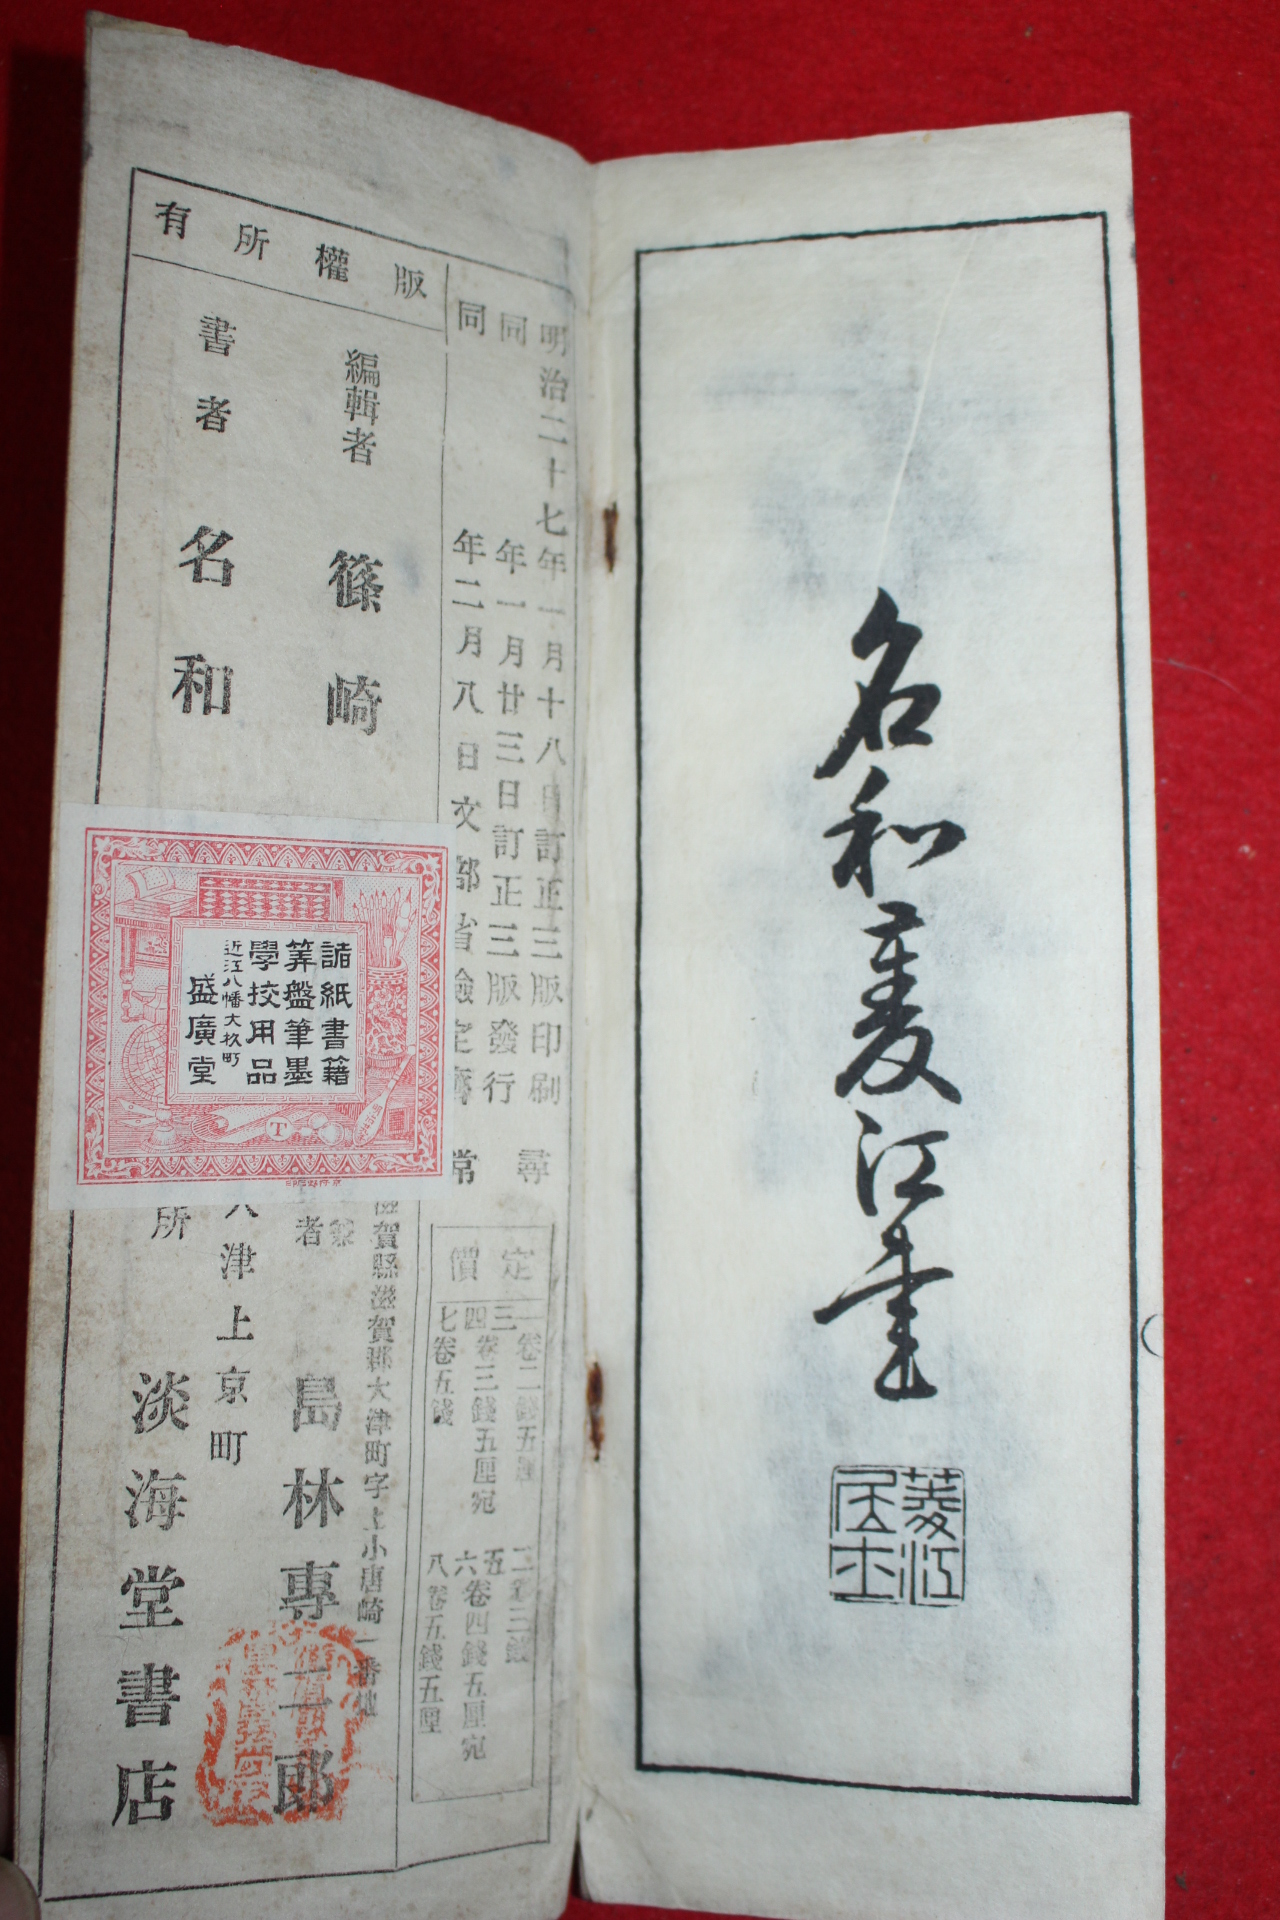 名和菱江書
菱江
居士
明治二十七年一月十八日訂正三版印刷
同年一月廿三日訂正三版發行
同年二月八日文部省檢定濟
尋
常
定價
一卷二錢五厘
三
四卷三錢五厘宛
七卷五錢
二卷三錢
五
六卷四錢五厘宛
八卷五錢五厘
版權所有
編輯者 篠崎
書者 名和
滋賀縣滋賀郡大津町字上小唐崎一番地
者 島林專二郎
大津上京町
所 淡海堂書店
諸紙書籍
筭盤筆墨
學校用品
近江八幡大杉町
盛廣堂
T